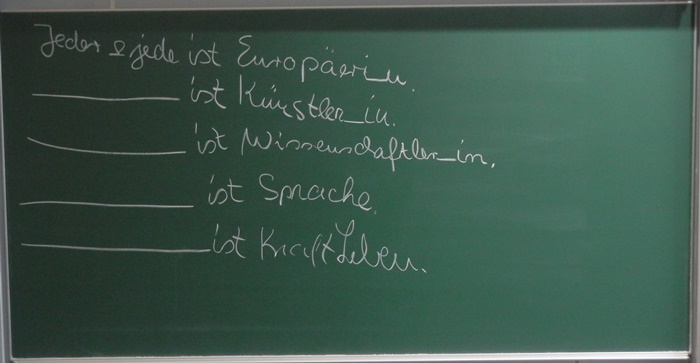 Jeder & jede ist Europäerin.
________ ist Künstler_in.
________ ist Wissenschaftler_in.
________ ist Sprache.
________ ist Kraft Leben.